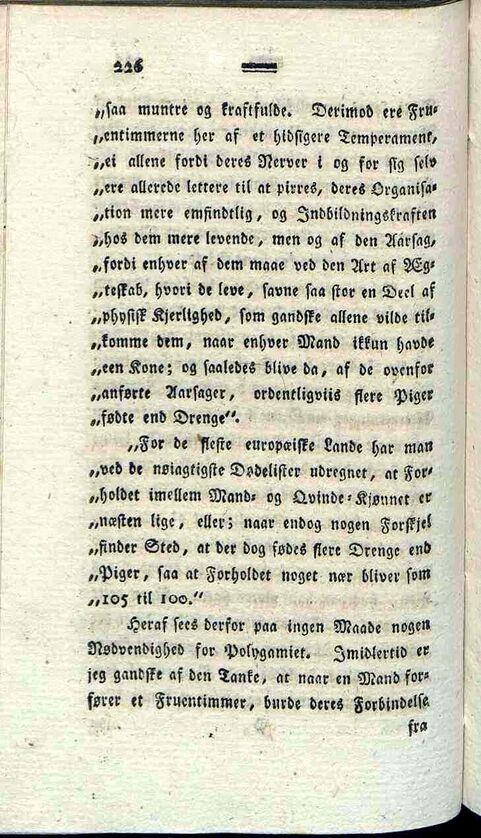 226
„saa muntre og kraftfulde. Derimod ere Fru-
„entimmerne her af et hidsigere Temperament,
„ei allene fordi deres Nerver i og for sig selv
„ere allerede lettere til at pirres, deres Organisa-
„tion mere emfindtlig, og Indbildningskraften
„hos dem mere levende, men og af den Aarsag,
„fordi enhver af dem maae ved den Art af Æg-
„teskab, hvori de leve, savne saa stor en Deel af
„physisk Kjerlighed, som gandske allene vilde til-
„komme dem, naar enhver Mand ikkun havde
„een Kone; og saaledes blive da, af de ovenfor
„anførte Aarsager, ordentligviis flere Piger
„fødte end Drenge“.
„For de fleste europæiske Lande har man
„ved de nøiagtigste Dødelister udregnet, at For-
„holdet imellem Mand- og Qvinde-Kjønnet er
„næsten lige, eller; naar endog nogen Forskjel
„finder Sted, at der dog fødes flere Drenge end
„Piger, saa at Forholdet noget nær bliver som
„105 til 100.“
Heraf sees derfor paa ingen Maade nogen
Nødvendighed for Polygamiet. Imidlertid er
jeg gandske af den Tanke, at naar en Mand for-
fører et Fruentimmer, burde deres Forbindelse
fra